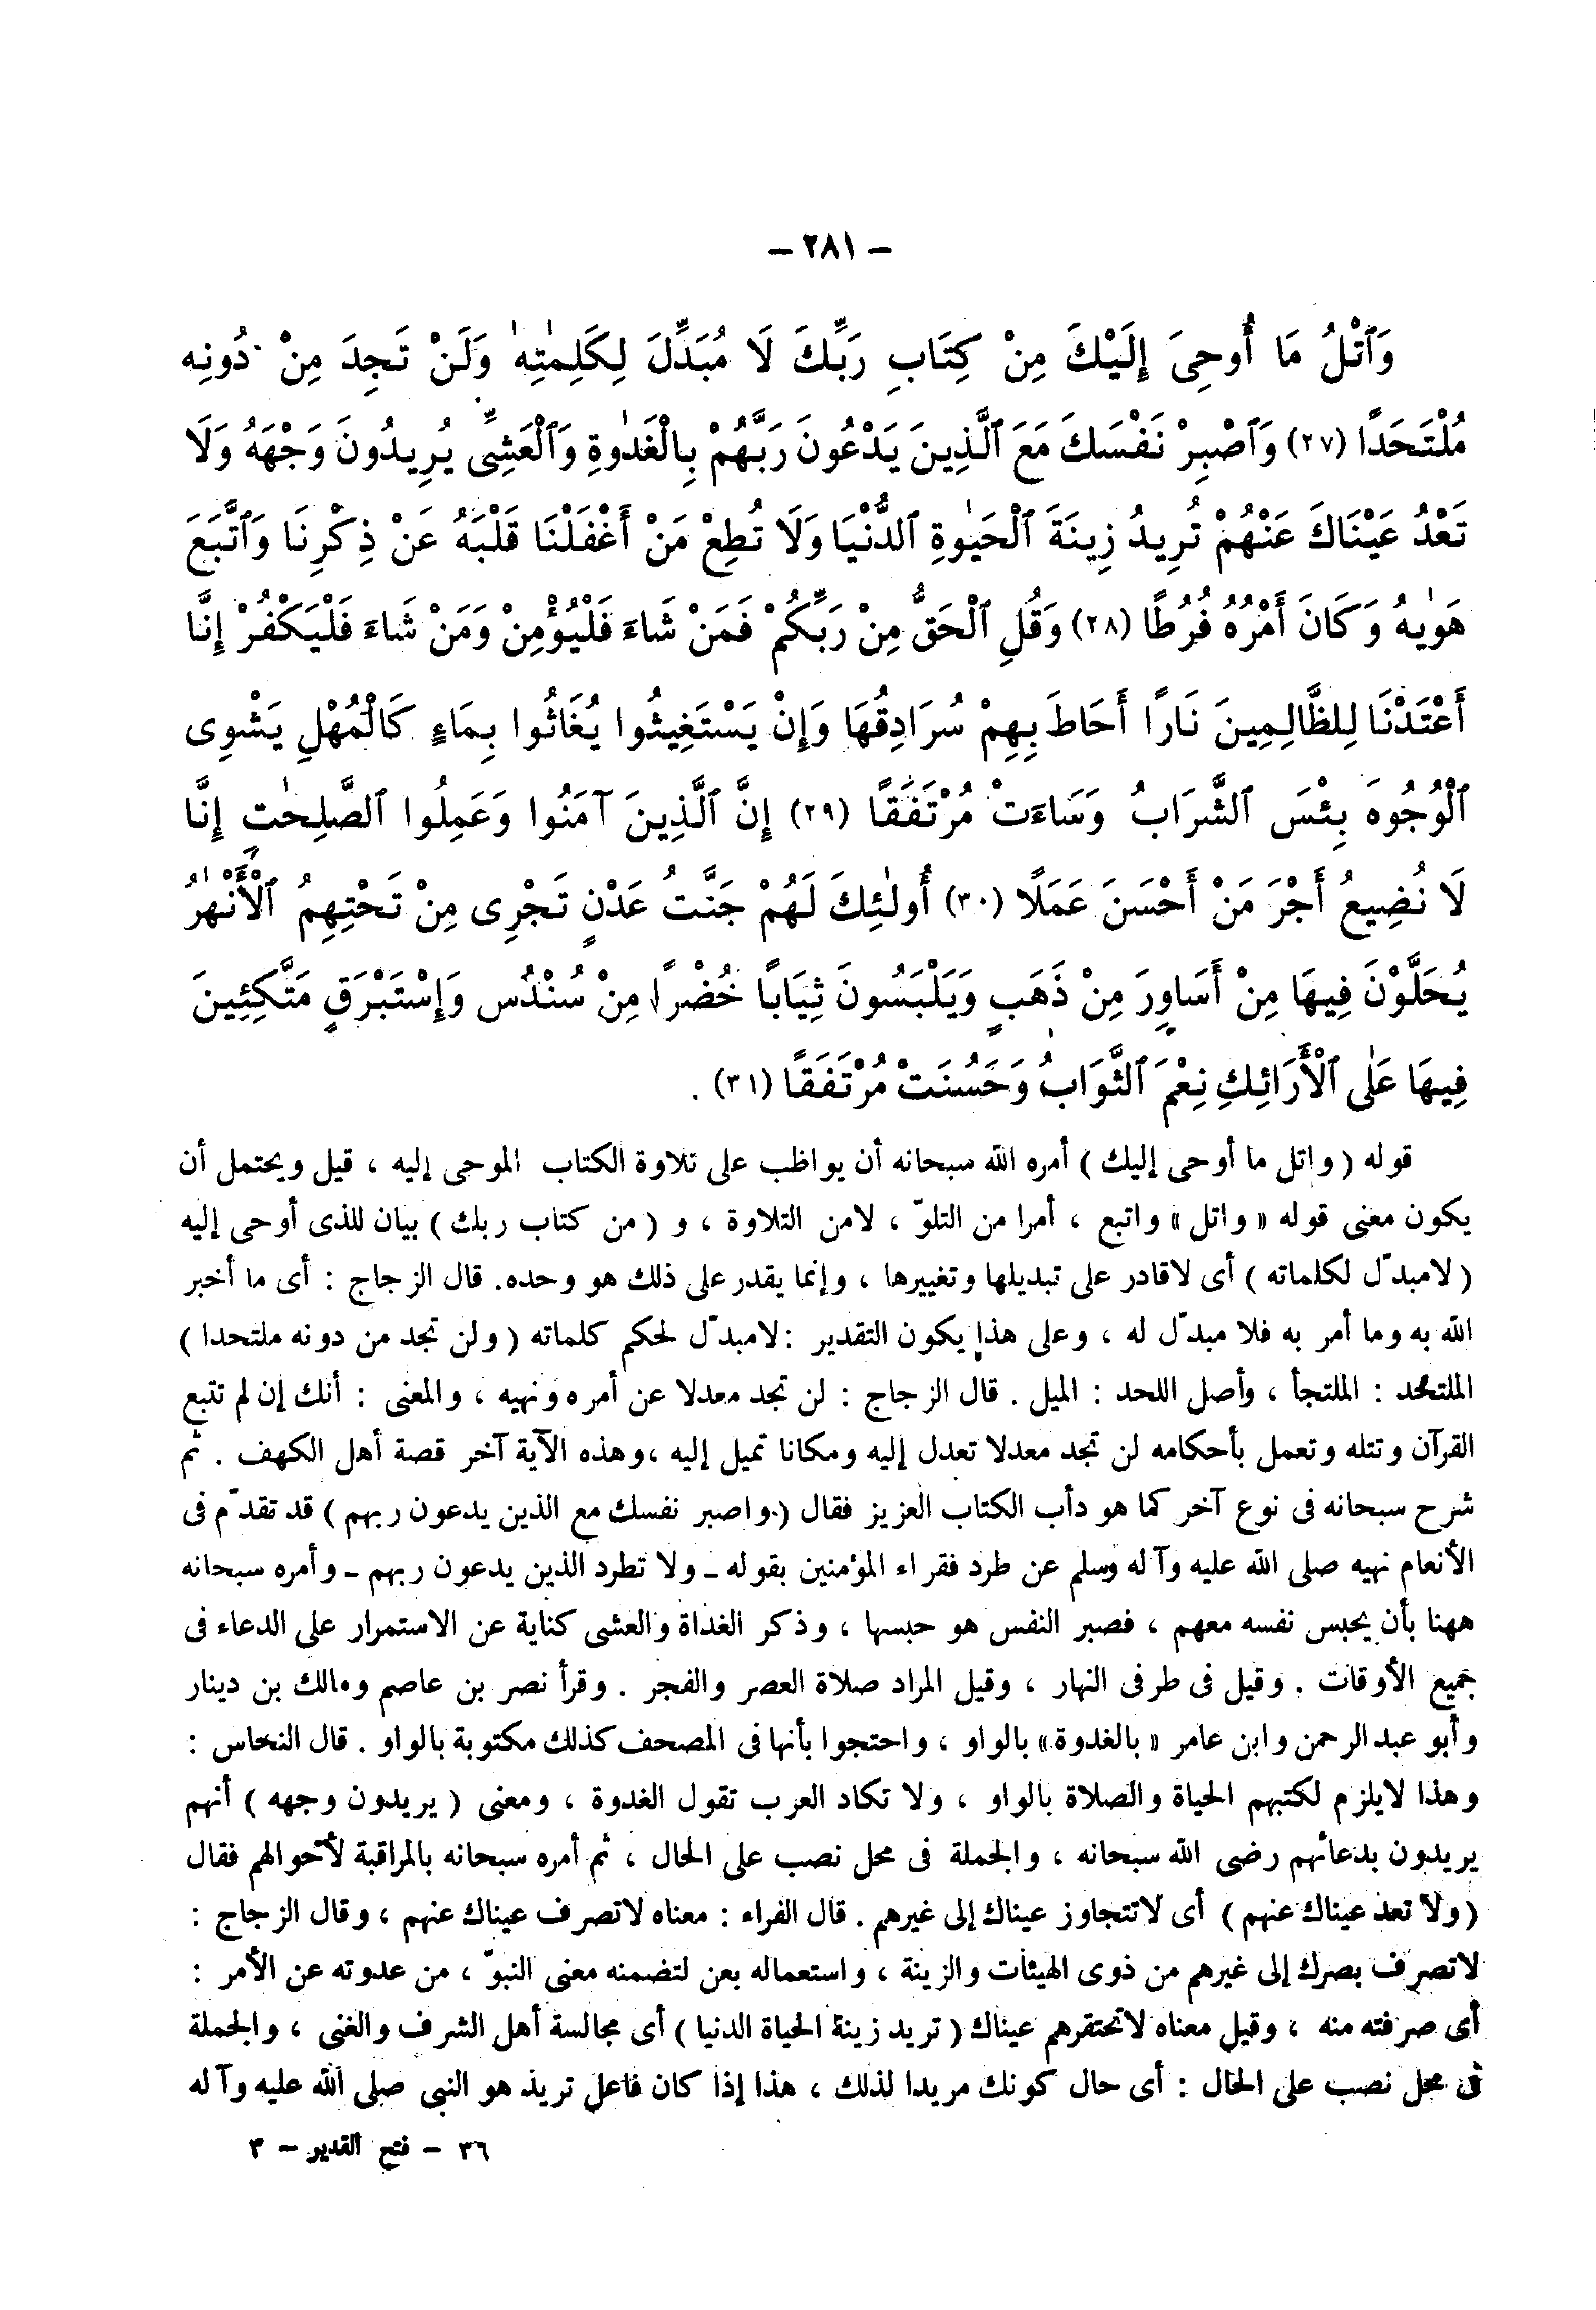 – ٢٨١ –
وَٱتْلُ مَا أُوحِىَ إِلَيْكَ مِنْ كِتَابِ رَبِّكَ لَا مُبَدِّلَ لِكَلِمٰتِهِ وَلَنْ تَجِدَ مِنْ دُونِهِ
مُلْتَحَدًا (٢٧) وَٱصْبِرْ نَفْسَكَ مَعَ ٱلَّذِينَ يَدْعُونَ رَبَّهُمْ بِالْغَدٰوةِ وَٱلْعَشِىِّ يُرِيدُونَ وَجْهَهُ وَلَا
تَعْدُ عَيْنَاكَ عَنْهُمْ تُرِيدُ زِينَةَ ٱلْحَيٰوةِ ٱلدُّنْيَا وَلَا تُطِعْ مَنْ أَغْفَلْنَا قَلْبَهُ عَنْ ذِكْرِنَا وَٱتَّبَعَ
هَوٰيهُ وَكَانَ أَمْرُهُ فُرُطًا (٢٨) وَقُلِ ٱلْحَقُّ مِنْ رَبِّكُمْ فَمَنْ شَاءَ فَلْيُؤْمِنْ وَمَنْ شَاءَ فَلْيَكْفُرْ إِنَّا
أَعْتَدْنَا لِلظَّالِمِينَ نَارًا أَحَاطَ بِهِمْ سُرَادِقُهَا وَإِنْ يَسْتَغِيثُوا يُغَاثُوا بِمَاءٍ كَالْمُهْلِ يَشْوِى
ٱلْوُجُوهَ بِئْسَ ٱلشَّرَابُ وَسَاءَتْ مُرْتَفَقًا (٢٩) إِنَّ ٱلَّذِينَ آمَنُوا وَعَمِلُوا ٱلصَّلِحٰتِ إِنَّا
لَا نُضِيعُ أَجْرَ مَنْ أَحْسَنَ عَمَلًا (٣٠) أُولٰئِكَ لَهُمْ جَنَّتُ عَدْنٍ تَجْرِى مِنْ تَحْتِهِمُ ٱلْأَنْهٰرُ
يُحَلَّوْنَ فِيهَا مِنْ أَسَاوِرَ مِنْ ذَهَبٍ وَيَلْبَسُونَ ثِيَابًا خُضْرًا مِنْ سُنْدُسٍ وَإِسْتَبْرَقٍ مُتَّكِئِينَ
فِيهَا عَلٰى ٱلْأَرَائِكِ نِعْمَ ٱلثَّوَابُ وَحَسُنَتْ مُرْتَفَقًا (٣١) .
قوله ( واتل ما أوحى إليك ) أمره الله سبحانه أن يواظب على تلاوة الكتاب الموحى إليه ، قيل ويحتمل أن
يكون معنى قوله « واتل » واتبع ، أمرا من التلوّ ، لامن التلاوة ، و ( من كتاب ربك ) بيان للذى أوحى إليه
( لامبدّل لكلماته ) أى لاقادر على تبديلها وتغييرها ، وإنما يقدر على ذلك هو وحده. قال الزجاج : أى ما أخبر
الله به وما أمر به فلا مبدّل له ، وعلى هذا يكون التقدير : لامبدّل لحكم كلماته ( ولن تجد من دونه ملتحدا )
الملتحد : الملتجأ ، وأصل اللحد : الميل . قال الزجاج : لن تجد معدلا عن أمره ونهيه ، والمعنى : أنك إن لم تتبع
القرآن وتتله وتعمل بأحكامه لن تجد معدلا تعدل إليه ومكانا تميل إليه ، وهذه الآية آخر قصة أهل الكهف . ثم
شرح سبحانه فى نوع آخر كما هو دأب الكتاب العزيز فقال ( واصبر نفسك مع الذين يدعون ربهم ) قد تقدّم فى
الأنعام نهيه صلى الله عليه وآله وسلم عن طرد فقراء المؤمنين بقوله ـ ولا تطرد الذين يدعون ربهم ـ وأمره سبحانه
ههنا بأن يحبس نفسه معهم ، فصبر النفس هو حبسها ، وذكر الغداة والعشى كناية عن الاستمرار على الدعاء فى
جميع الأوقات . وقيل فى طرفى النهار ، وقيل المراد صلاة العصر والفجر . وقرأ نصر بن عاصم ومالك بن دينار
وأبو عبد الرحمن وابن عامر « بالغدوة » بالواو ، واحتجوا بأنها فى المصحف كذلك مكتوبة بالواو . قال النحاس :
وهذا لايلزم لكتبهم الحياة والصلاة بالواو ، ولا تكاد العرب تقول الغدوة ، ومعنى ( يريدون وجهه ) أنهم
يريدون بدعائهم رضى الله سبحانه ، والجملة فى محل نصب على الحال ، ثم أمره سبحانه بالمراقبة لأحوالهم فقال
( ولا تعد عيناك عنهم ) أى لاتتجاوز عيناك إلى غيرهم . قال الفراء : معناه لاتصرف عيناك عنهم ، وقال الزجاج :
لاتصرف بصرك إلى غيرهم من ذوى الهيئات والزينة ، واستعماله بعن لتضمنه معنى النبوّ ، من عدوته عن الأمر :
أى صرفته منه ، وقيل معناه لاتحتقرهم عيناك ( تريد زينة الحياة الدنيا ) أى مجالسة أهل الشرف والغنى ، والجملة
فى محل نصب على الحال : أى حال كونك مريدا لذلك ، هذا إذا كان فاعل تريد هو النبى صلى الله عليه وآله
٣٦ – فتح القدير – ٣